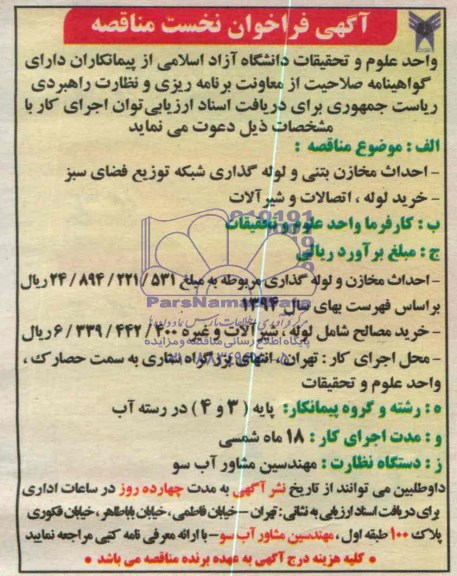 آگهی فراخوان نخست مناقصه
واحد علوم و تحقیقات دانشگاه آزاد اسلامی از پیمانکاران دارای
گواهینامه صلاحیت از معاونت برنامه ریزی و نظارت راهبردی
ریاست جمهوری برای دریافت اسناد ارزیابی توان اجرای کار با
مشخصات ذیل دعوت می نماید
الف : موضوع مناقصه :
- احداث مخازن بتنی و لوله گذاری شبکه توزیع فضای سبز
- خرید لوله ، اتصالات و شیرآلات
ب : کارفرما واحد علوم و تحقیقات
ج : مبلغ برآورد ریالی
- احداث مخازن و لوله گذاری مربوطه به مبلغ ۵۳۱ / ۲۲۱ / ۸۹۴ / ۲۴ ریال
براساس فهرست بهای سال ۱۳۹۴
ParsNamadData
پایگاه اطلاع رسانی مناقصه و مزایده
- خرید مصالح شامل لوله ، شیرآلات و غیره ۲۰۰ / ۴۴۲ / ۳۳۹ / ۶ ریال
- محل اجرای کار : تهران ، انتهای بزرگراه ستاری به سمت حصارک ،
واحد علوم و تحقیقات
ه : رشته و گروه پیمانکار: پایه ( ۳ و ۴ ) در رسته آب
و : مدت اجرای کار : ۱۸ ماه شمسی
ز : دستگاه نظارت : مهندسین مشاور آب سو
داوطلبین می توانند از تاریخ نشر آگهی به مدت چهارده روز در ساعات اداری
برای دریافت اسناد ارزیابی به نشانی : تهران - خیابان فاطمی ، خیابان باباطاهر ، خیابان فکوری
پلاک ۱۰۰ طبقه اول ، مهندسین مشاور آب سو - با ارائه معرفی نامه کتبی مراجعه نمایید
• کلیه هزینه درج آگهی به عهده برنده مناقصه می باشد •